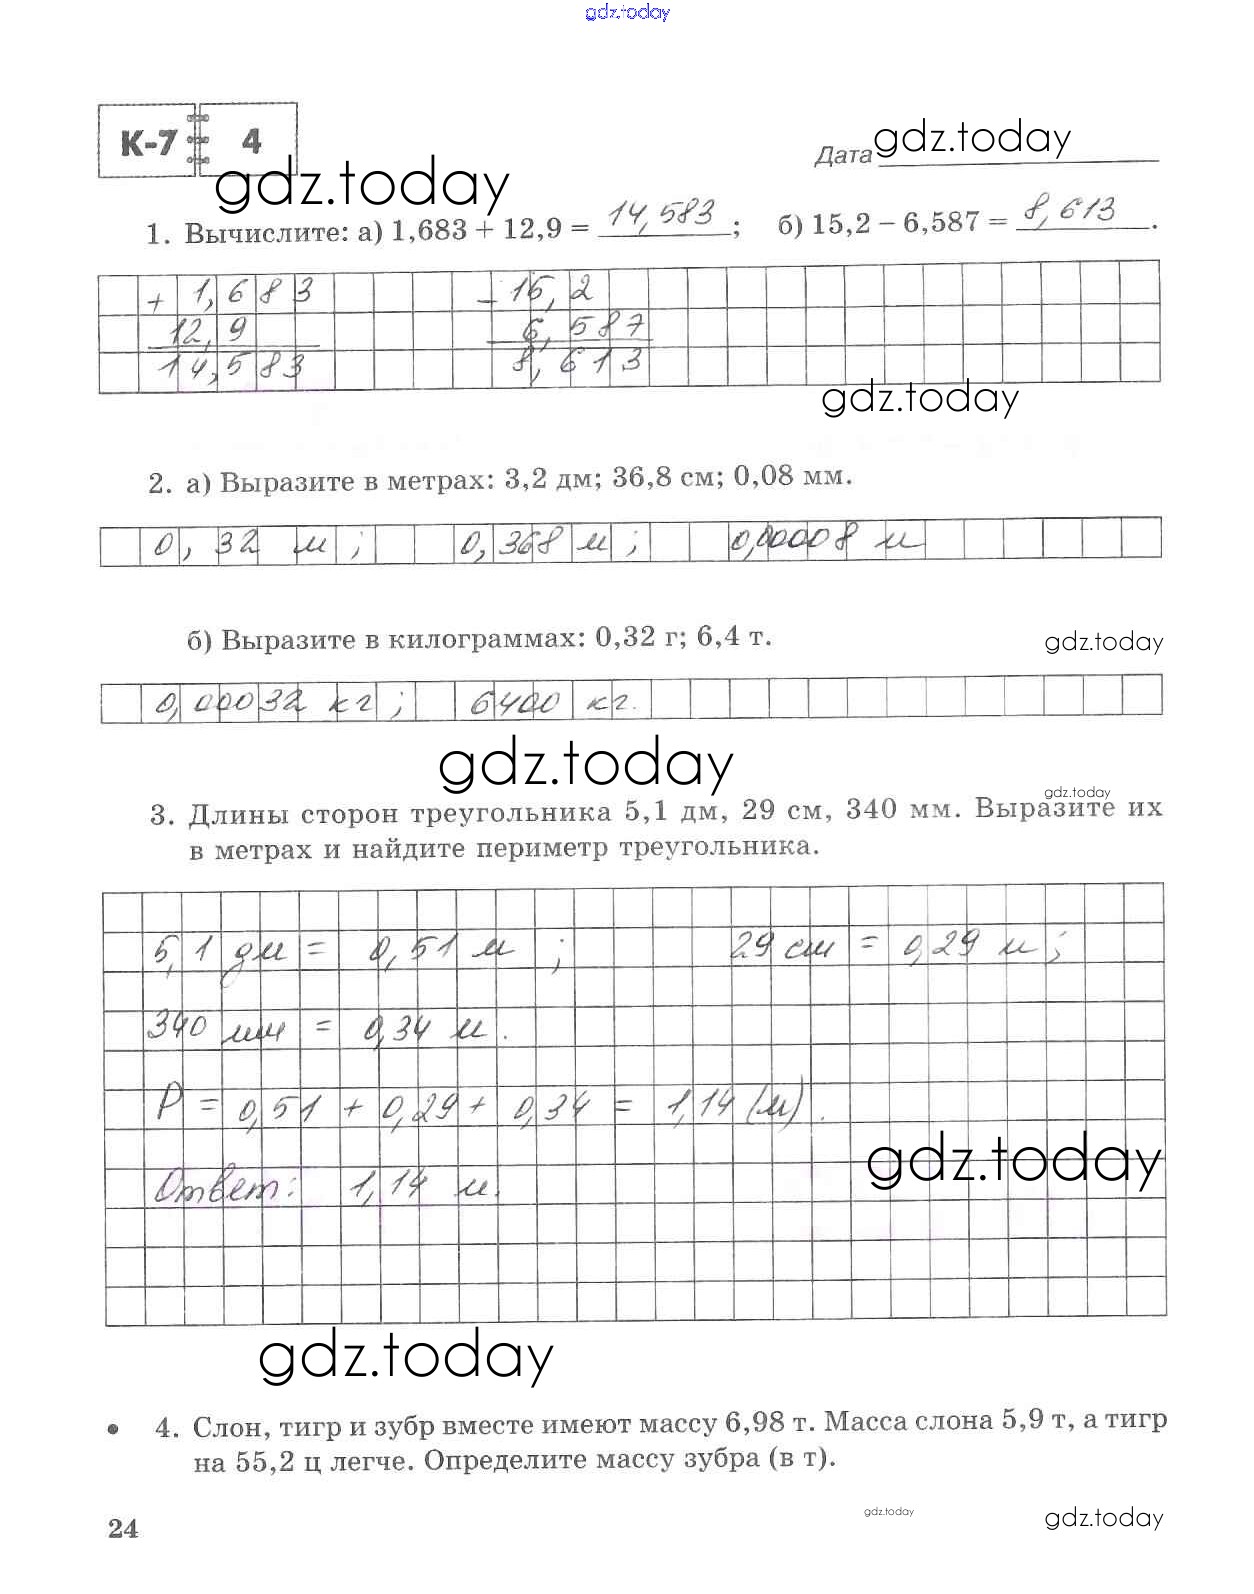 gdz.today
К-7 4
Дата gdz.today
gdz.today
1. Вычислите: а) 1,683 + 12,9 = 14,583; б) 15,2 – 6,587 = 8,613.
+ 1,683 – 15,2
12,9 6,587
14,583 8,613
gdz.today
2. а) Выразите в метрах: 3,2 дм; 36,8 см; 0,08 мм.
0,32 м; 0,368 м; 0,00008 м
б) Выразите в килограммах: 0,32 г; 6,4 т.
gdz.today
0,00032 кг; 6400 кг.
gdz.today
gdz.today
3. Длины сторон треугольника 5,1 дм, 29 см, 340 мм. Выразите их
в метрах и найдите периметр треугольника.
5,1 дм = 0,51 м; 29 см = 0,29 м;
340 мм = 0,34 м.
P = 0,51 + 0,29 + 0,34 = 1,14 (м).
gdz.today
Ответ: 1,14 м.
gdz.today
• 4. Слон, тигр и зубр вместе имеют массу 6,98 т. Масса слона 5,9 т, а тигр
на 55,2 ц легче. Определите массу зубра (в т).
gdz.today
gdz.today
24